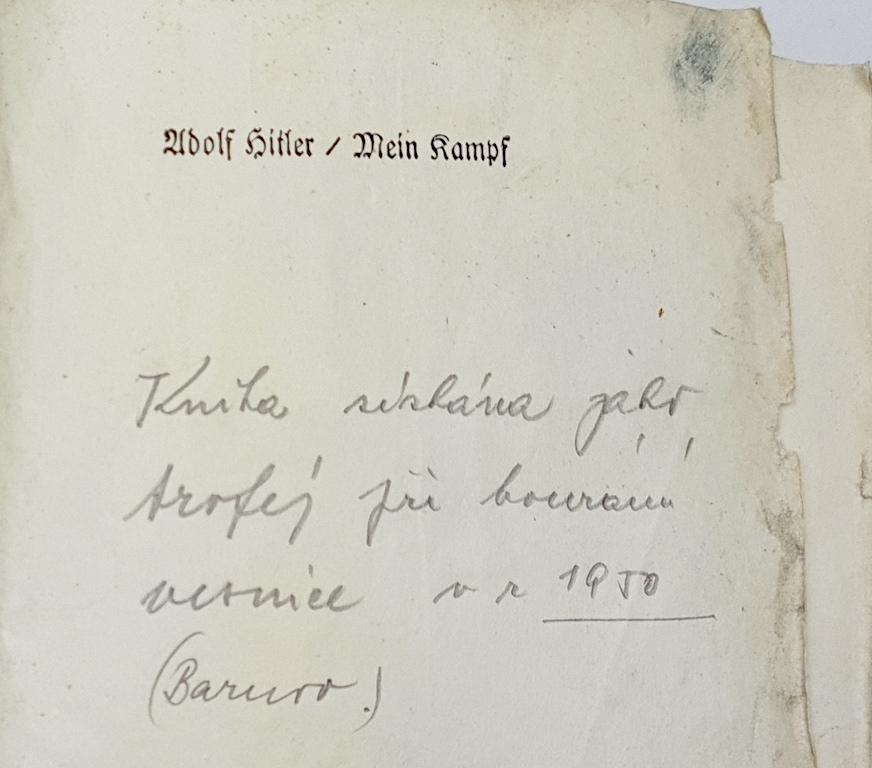 Adolf Hitler / Mein Kampf
Kniha získána jako
trofej při bourání
vesnice v r 1950
(Barnov.)